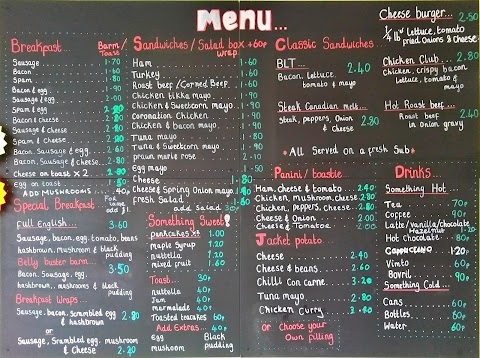 Menu...
Breakfast
Barm/
Toast
Sausage 1.70
Bacon 1.80
Spam 1.80
Bacon & egg 1.90
Sausage & egg 2.00
Spam & egg 2.80
Bacon & Cheese 2.80
Sausage & Cheese 2.80
Spam & Cheese 2.10
Bacon, Sausage & egg 2.60
Bacon, Sausage & Cheese 2.80
Cheese on toast x2 2.80
Egg on toast 1.50
ADD MUSHROOMS 40p
Special Breakfast
For
add
Full English... 3.60
Sausage, bacon, egg, tomato, beans
hashbrown, mushroom & black
pudding
Belly buster barm...
Bacon, Sausage, egg, 3.50
hashbrown, mushrooms & black
pudding
Breakfast Wraps
Sausage, bacon, scrambled egg 2.80
& hashbrown
or
Sausage, Scrambled egg, mushroom
& Cheese 2.20
Sandwiches / Salad box +60p
wrap
Ham 1.60
Turkey 1.60
Roast beef / Corned Beef 1.60
Chicken tikka mayo 1.90
Chicken & Sweetcorn mayo 1.90
Coronation Chicken 1.90
Chicken & bacon mayo 1.90
Tuna mayo 1.80
Tuna & Sweetcorn mayo 1.90
prawn marie rose 2.10
Egg mayo
Cheese
Cheese & Spring Onion mayo
fresh Salad
add Salad 30p
Something Sweet!
Pancakes x4 1.00
maple Syrup 1.20
nuttella 1.20
mixed fruit 1.60
Toast... 30p
nuttella 40p
Jam 40p
marmalade 40p
Toasted teacakes 60p
Add Extras... 40p
egg Black
mushoom pudding
Classic Sandwiches
BLT... 2.40
Bacon, lettuce,
tomato & mayo
Steak Canadian melt...
Steak, peppers, Onion 2.80
& Cheese
Cheese burger... 2.50
1/4 lb w/ Lettuce, tomato
fried Onions & Cheese
Chicken Club... 2.80
Chicken, crispy bacon
Lettuce, tomato &
mayo
Hot Roast beef...
Roast beef 2.40
in Onion gravy
* All Served on a fresh Sub *
Panini / toastie
Ham, Cheese & tomato 2.40
Chicken, mushroom, Cheese 2.80
Chicken, peppers, Cheese 2.80
Cheese & Onion 2.00
Cheese & Tomatoe 2.00
Jacket potato
Cheese 2.40
Cheese & beans 2.60
Chilli con carne 3.20
Tuna mayo 2.80
Chicken Curry 3.80
or Choose your
Own filling
Drinks
Something Hot
Tea 70p
Coffee 90p
Latte/Vanilla/chocolate
Hazelnut 1.20
Hot Chocolate 80p
Cappuccino 1.20
Vimto 60p
Bovril 90p
Something Cold...
Cans 60p
Bottles 60p
Water 60p